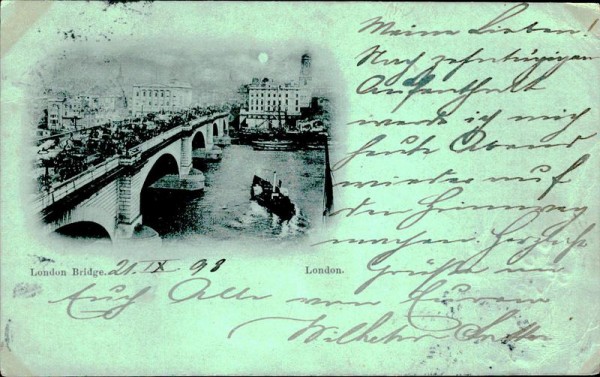 Meine Lieben!
Nach zehntägigen
Aufenthalt
werde ich mich
heute Abend
wieder auf
den Heimweg
machen. Herzliche
Grüße an
London Bridge. 21.IX 98 London.
Euch Alle von Eurem
Wilhelm